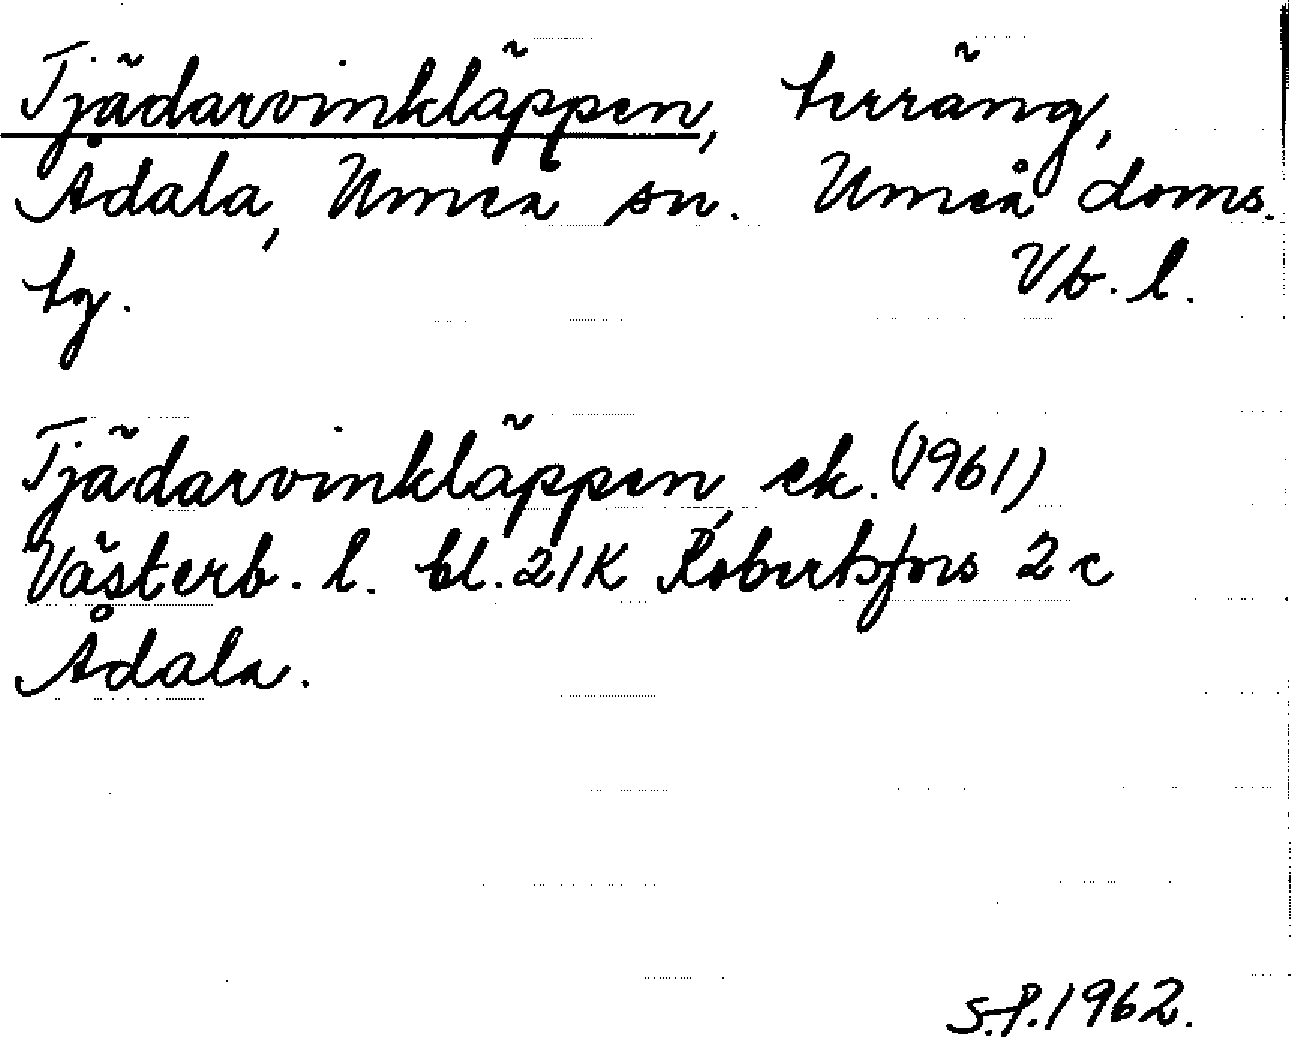 Tjädarvinkläppen, terräng,
Ådala, Umeå sn. Umeå doms.
tg. Vb. l.
Tjädarvinkläppen, ek. (1961)
Västerb. l. bl. 21K Robertsfors 2 c
Ådala.
S.P. 1962.